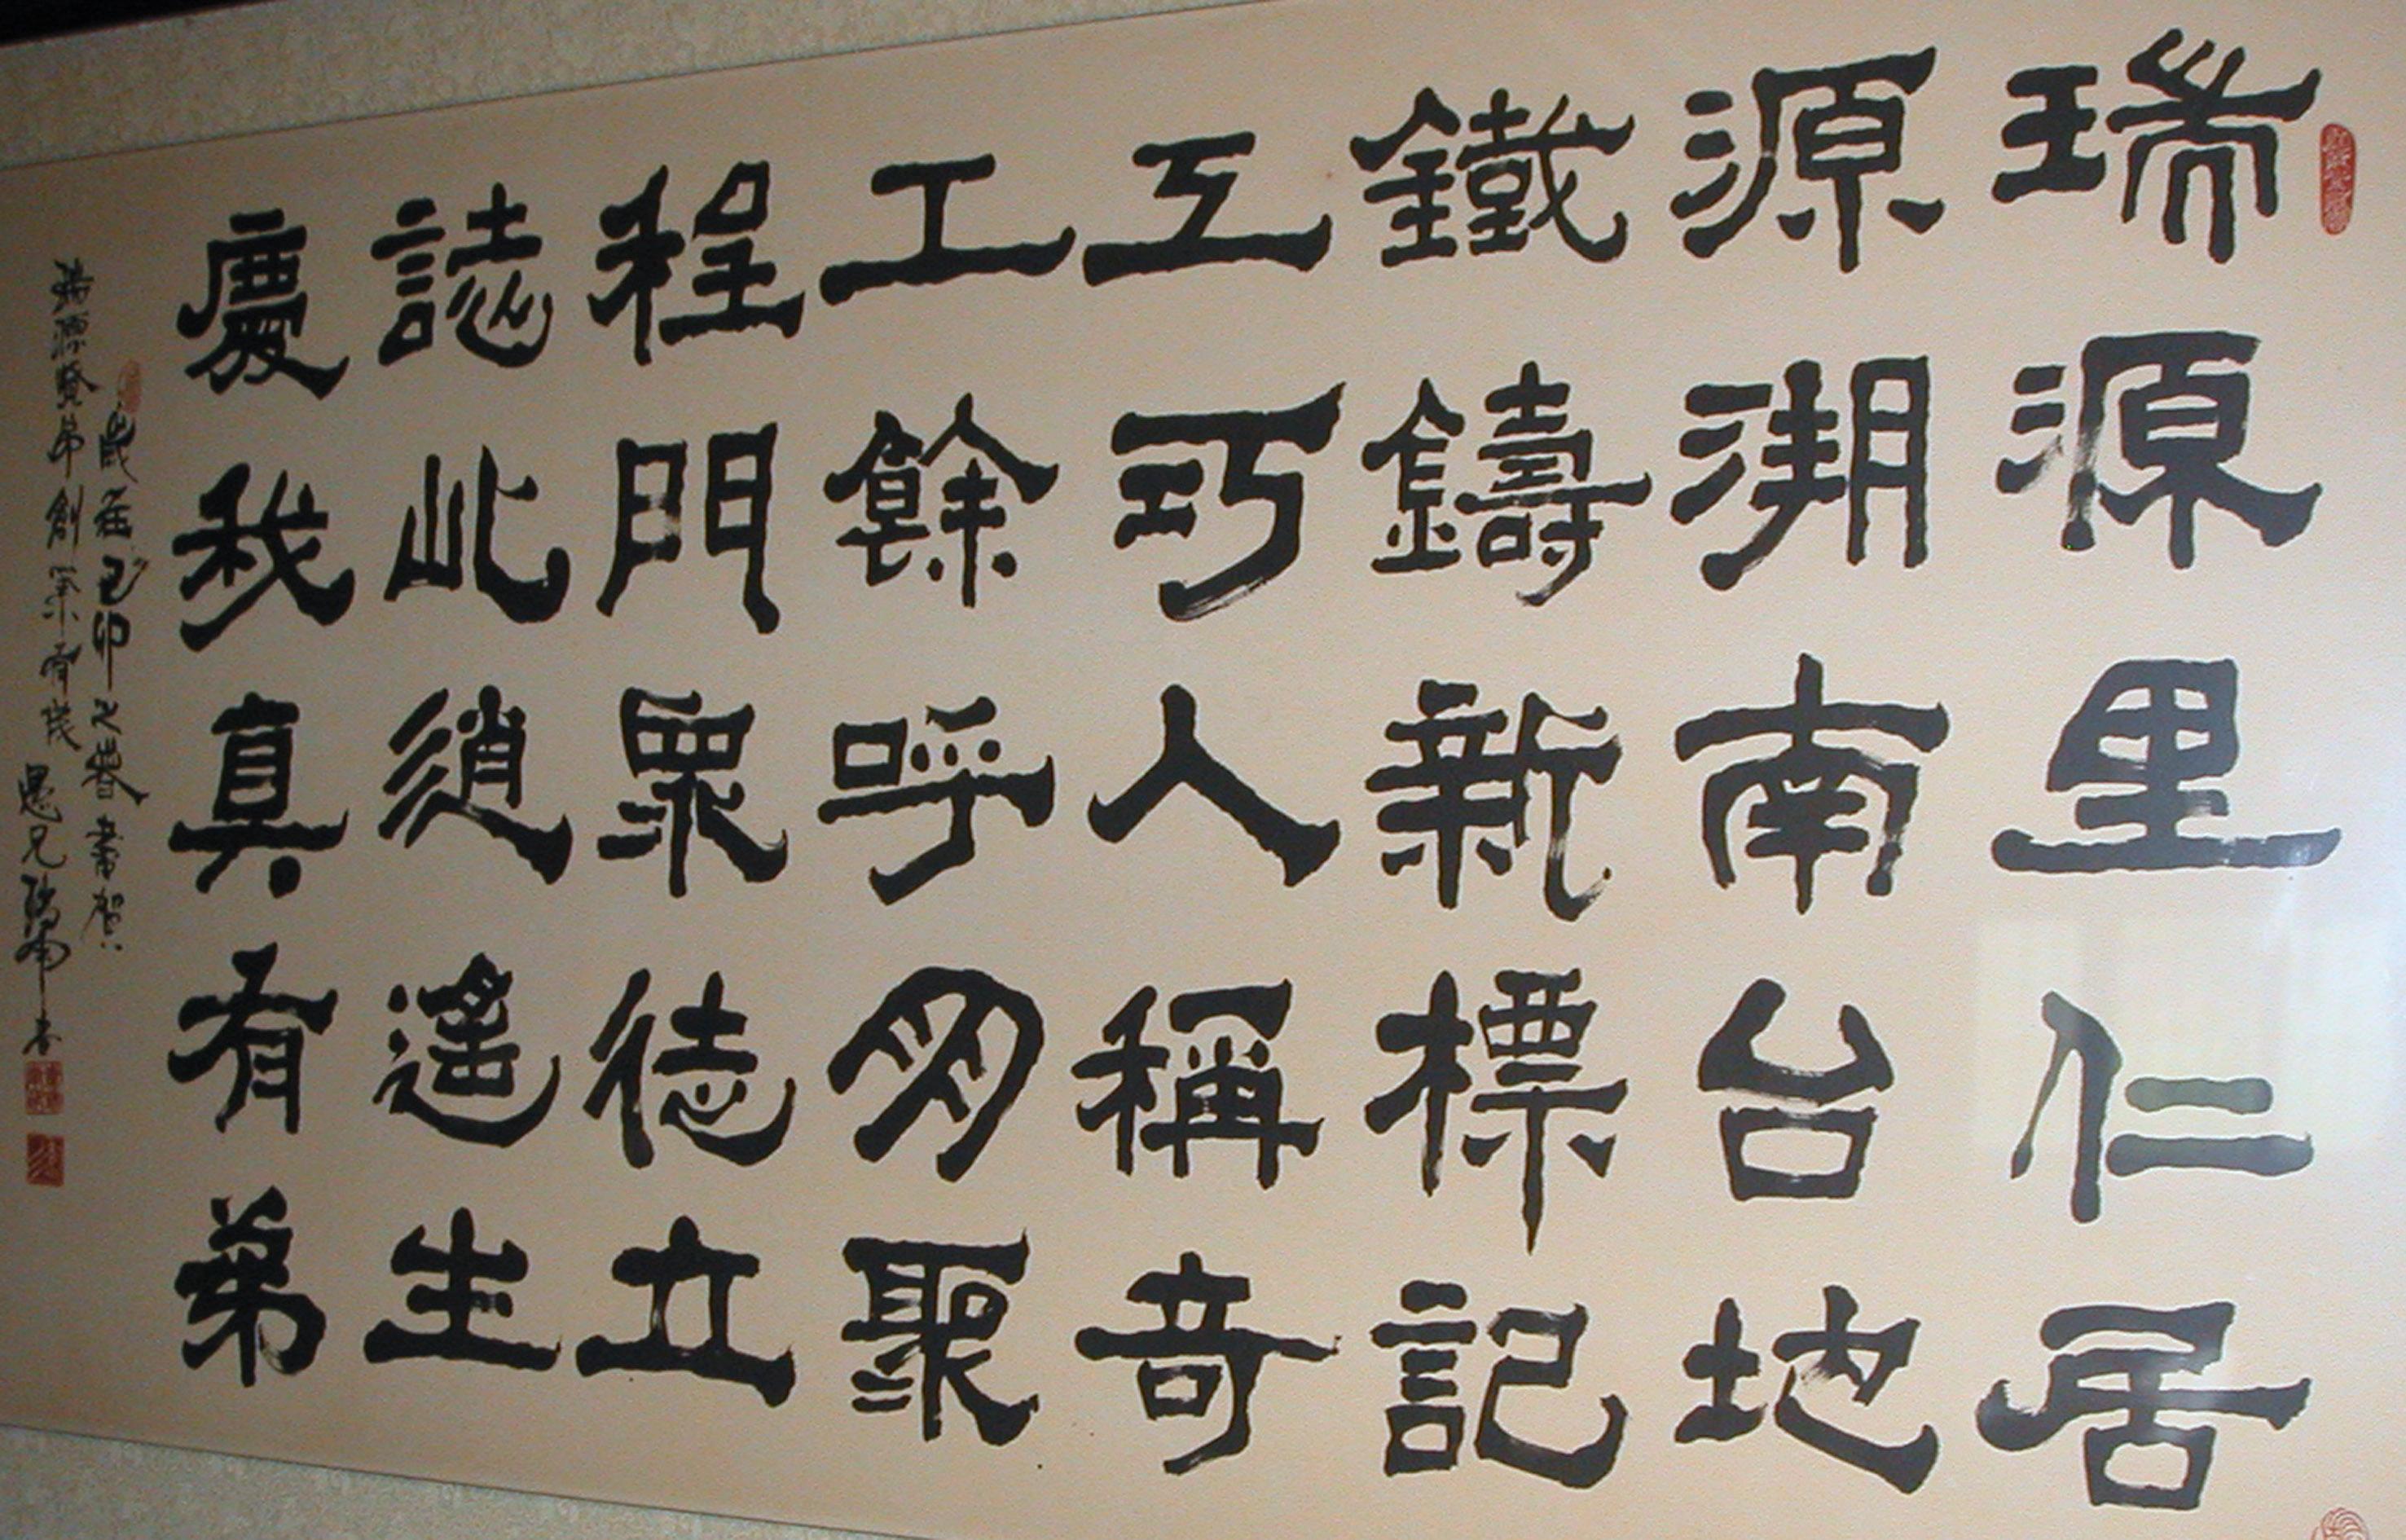 瑞源里仁居
源溯南台地
鐵鑄新標記
工巧人稱奇
工餘呼朋聚
程門眾徒立
誌此逍遙生
慶我真有弟
歲在己卯之春書賀
瑞源賢弟創業有成
愚兄